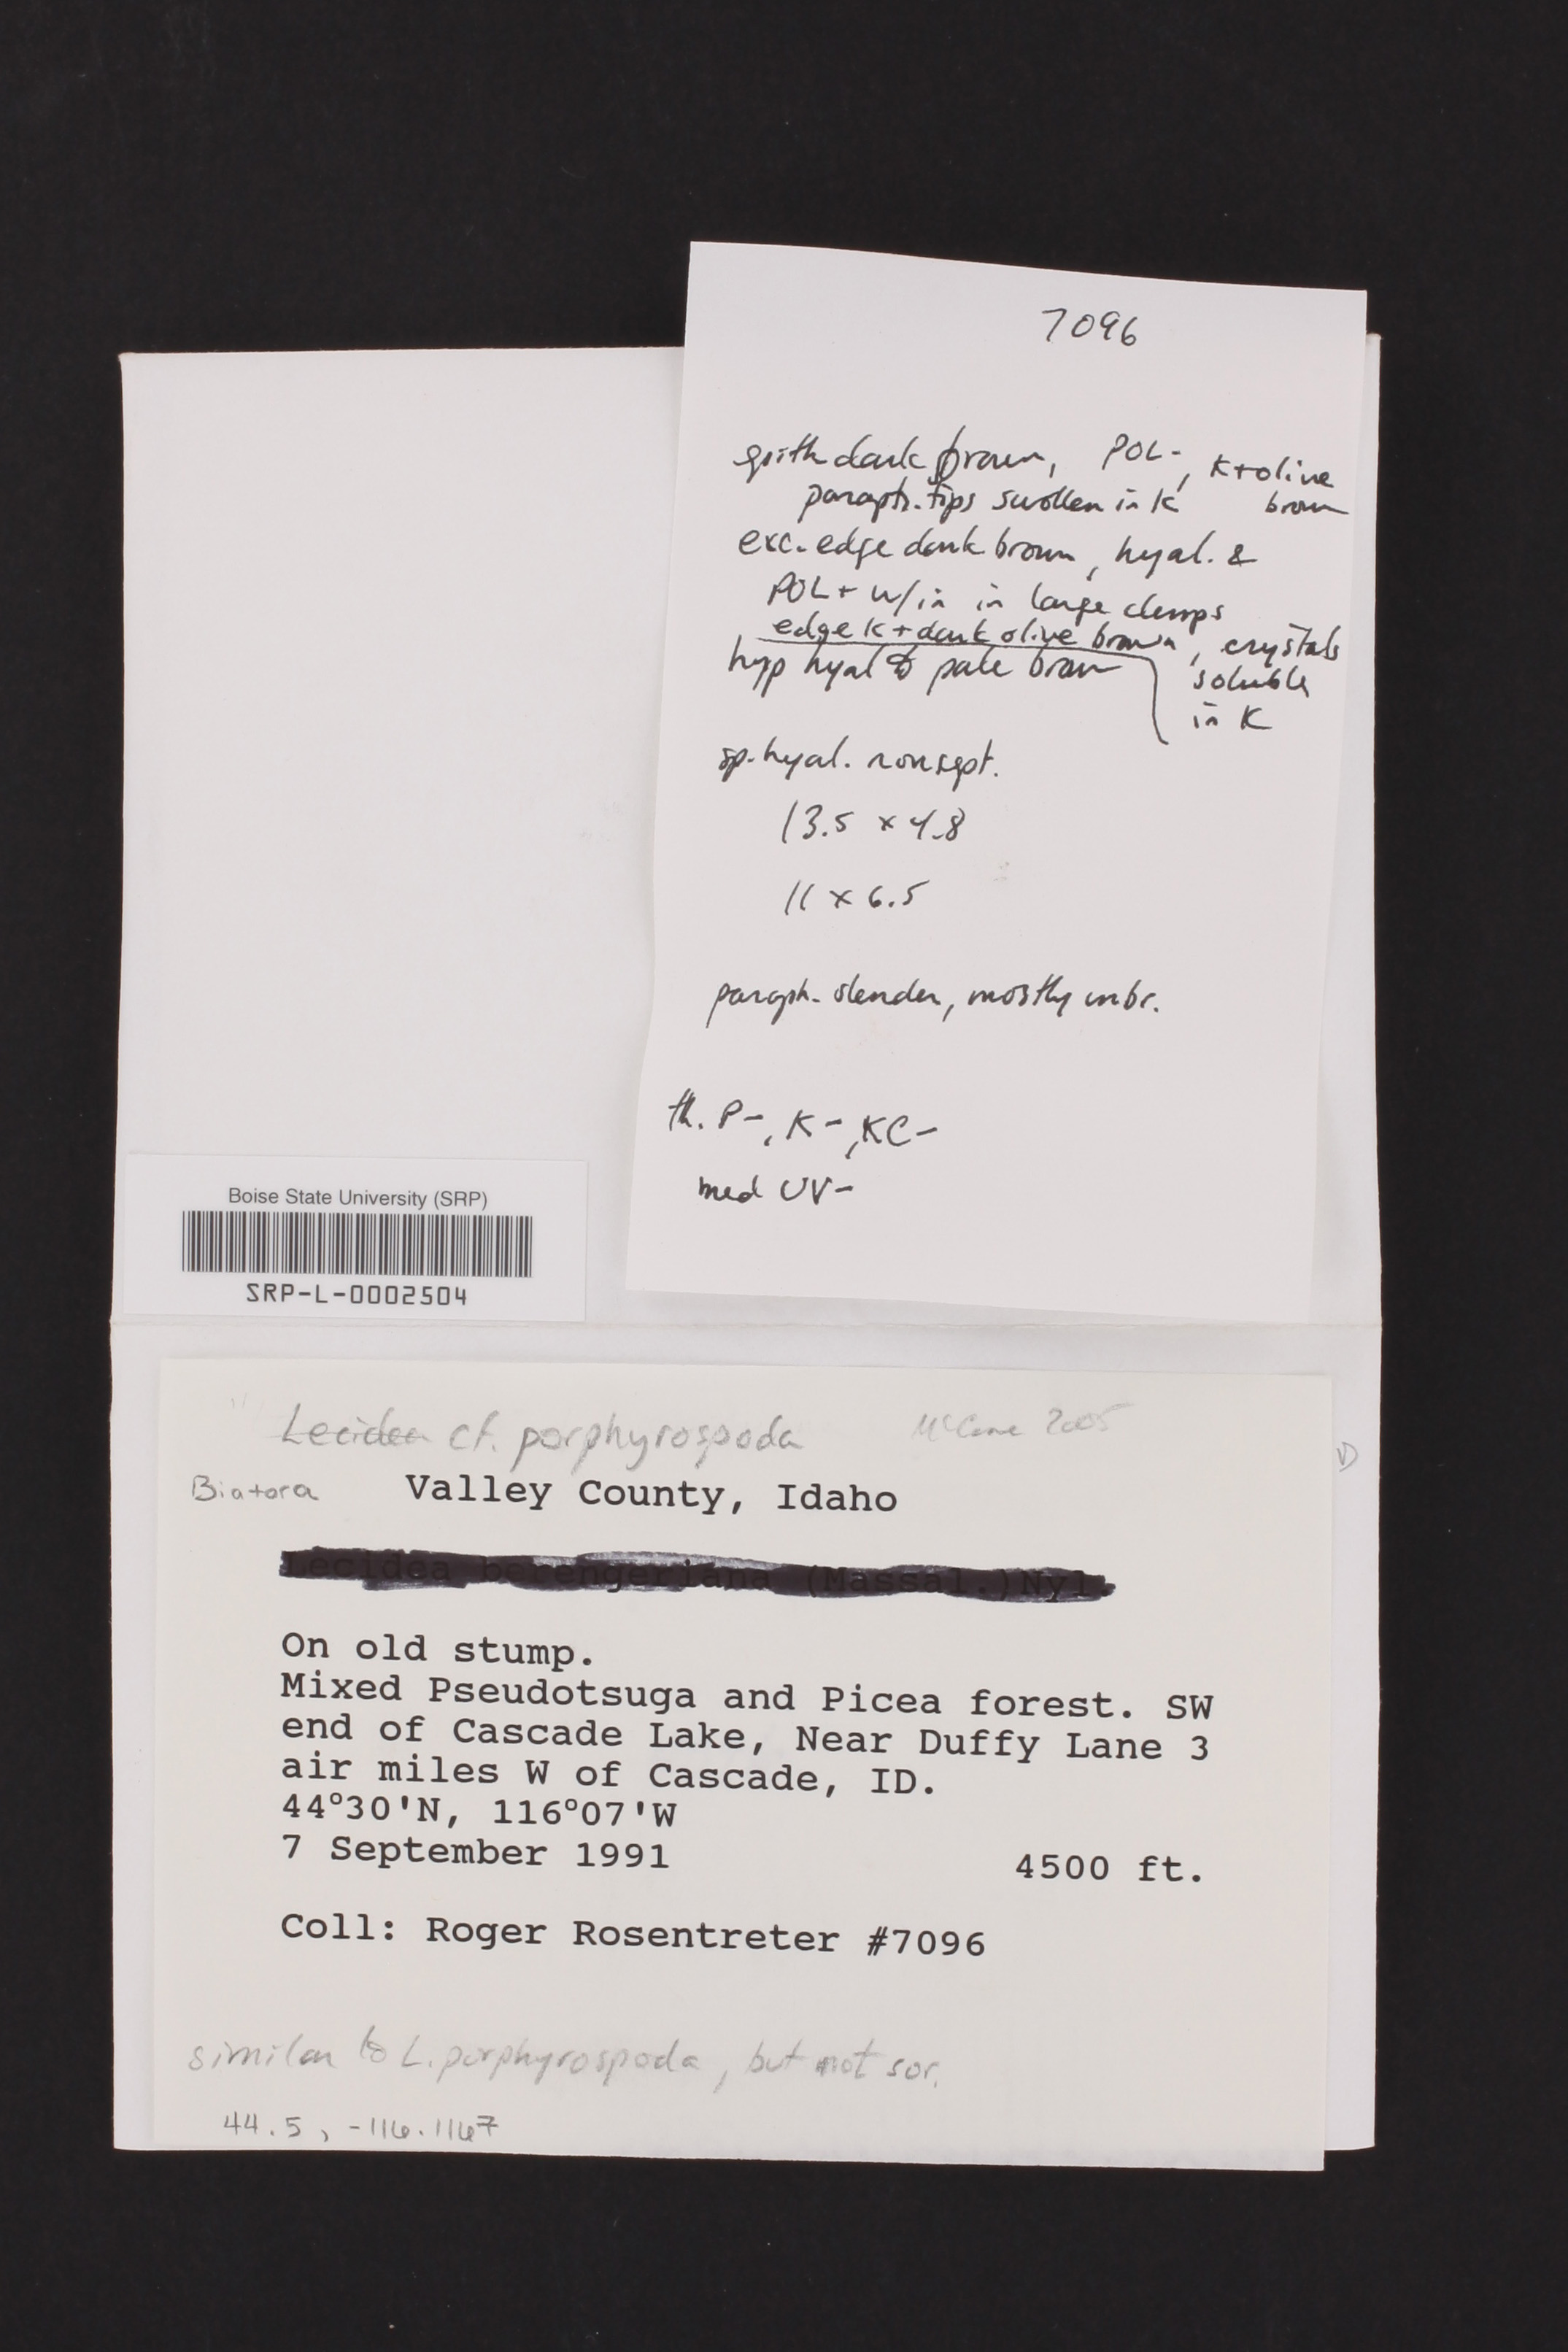 7096
epith dark brown, POL-, K+ olive
paraph. tips swollen in K brown
exc. edge dark brown, hyal. &
POL+ w/in in large clumps
edge K+ dark olive brown, crystals
hyp hyal to pale brown soluble
in K
sp. hyal. nonsept.
13.5 x 4.8
11 x 6.5
paraph. slender, mostly unbr.
th. P-, K-, KC-
med UV-
Boise State University (SRP)
SRP-L-0002504
Lecidea cf. porphyrospoda McCune 2005
Biatora Valley County, Idaho
Lecidea berengeriana (Massal.) Nyl.
On old stump.
Mixed Pseudotsuga and Picea forest. SW
end of Cascade Lake, Near Duffy Lane 3
air miles W of Cascade, ID.
44°30'N, 116°07'W
7 September 1991 4500 ft.
Coll: Roger Rosentreter #7096
similar to L. porphyrospoda, but not sor.
44.5, -116.1167